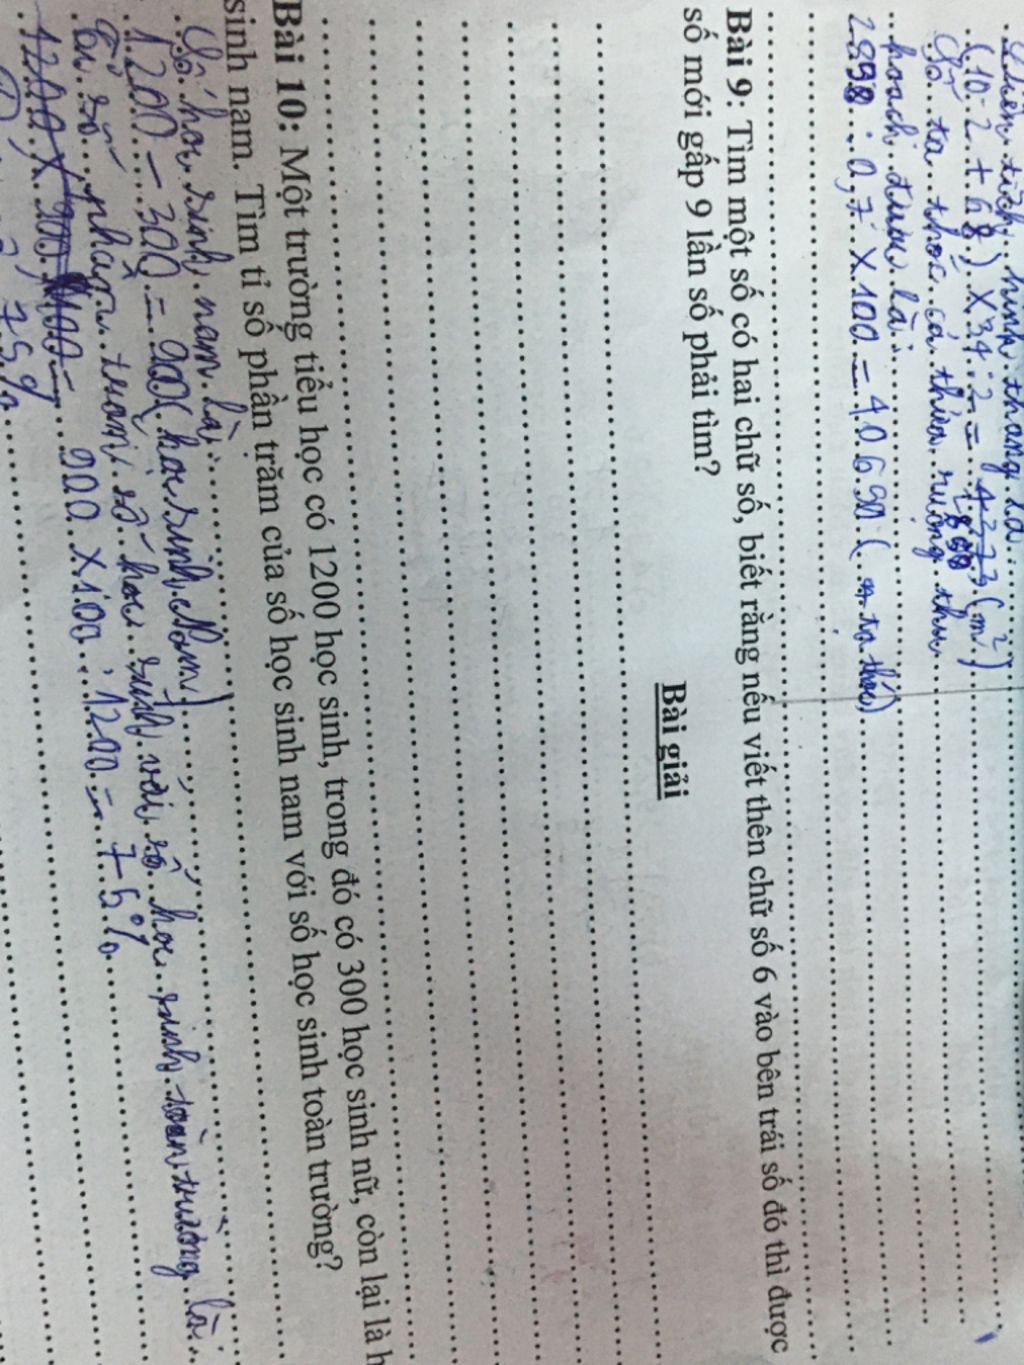 Diện tích hình thang là:
(10,2 + 68) x 34 : 2 = (m²)
Số tạ thóc cả thửa ruộng thu
hoạch được là:
: 0,7 x 100 = 40690 ( tạ thóc)
Bài 9: Tìm một số có hai chữ số, biết rằng nếu viết thên chữ số 6 vào bên trái số đó thì được
số mới gấp 9 lần số phải tìm?
Bài giải
Bài 10: Một trường tiểu học có 1200 học sinh, trong đó có 300 học sinh nữ, còn lại là h
sinh nam. Tìm tỉ số phần trăm của số học sinh nam với số học sinh toàn trường?
Số học sinh nam là:
1200 - 300 = 900 (học sinh Nam)
Tỉ số phần trăm số học sinh với số học sinh toàn trường là:
900 x 100 : 1200 = 75%
75%